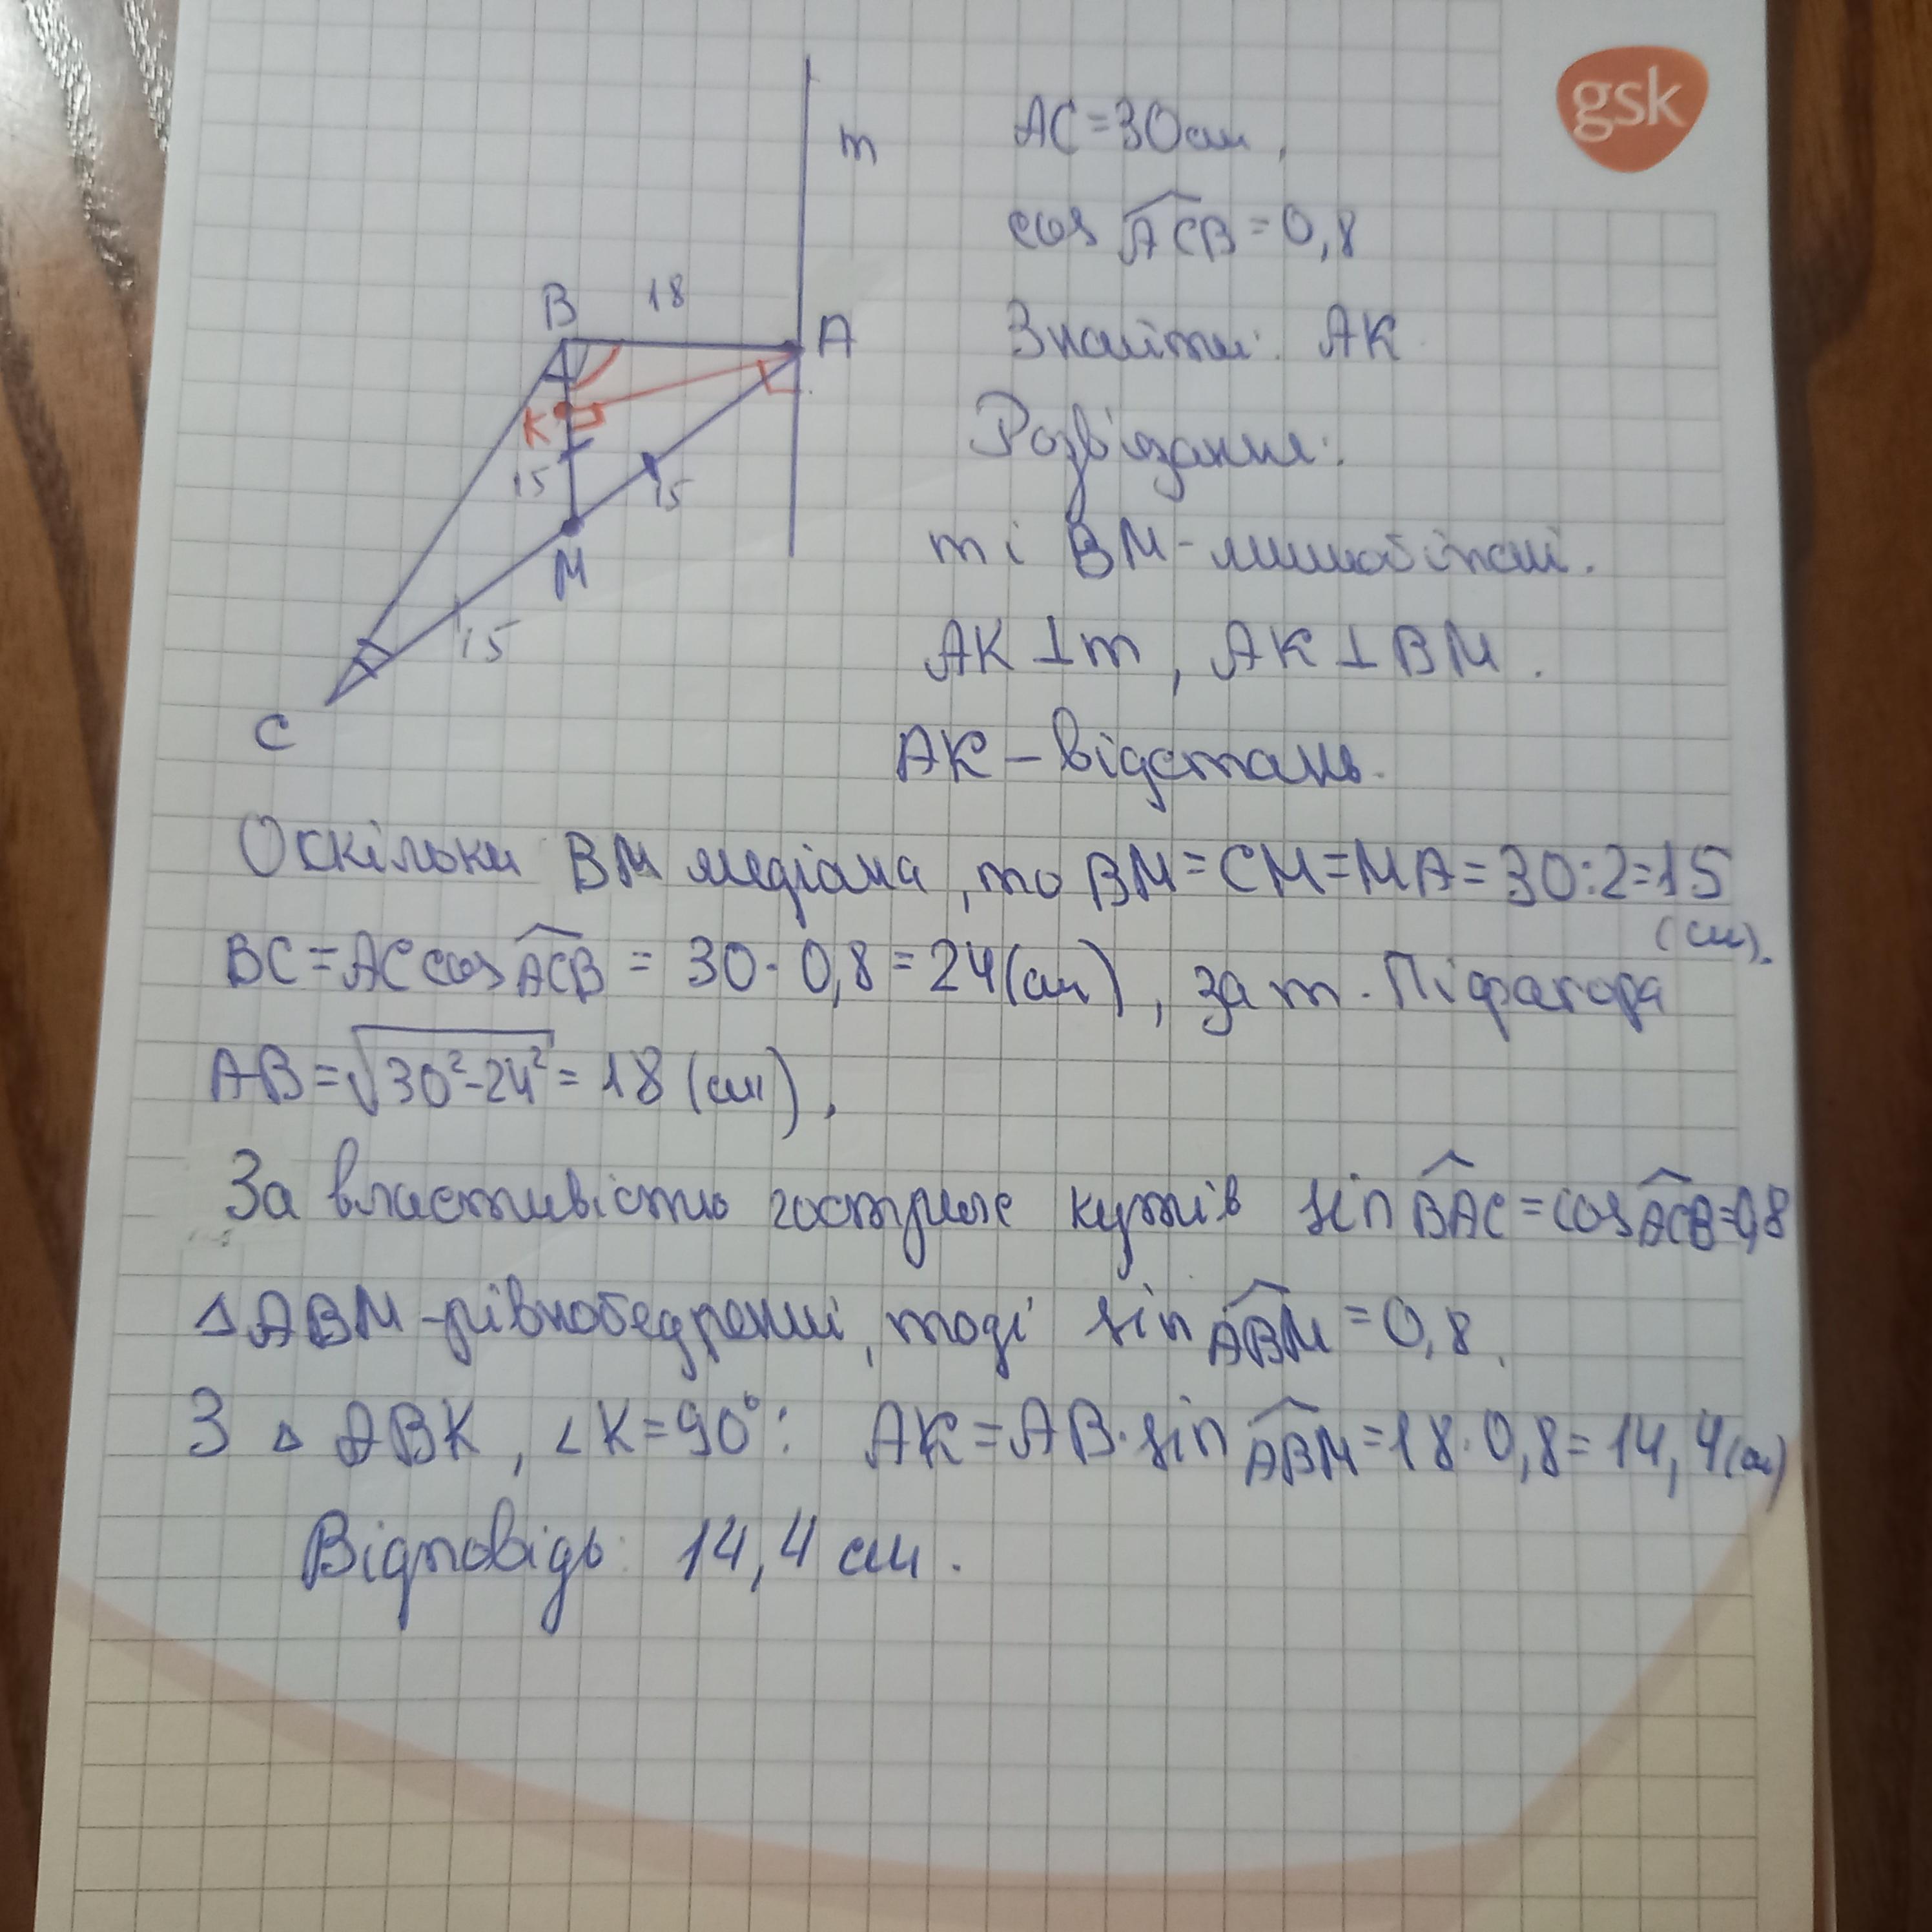 gsk
m
AC=30см,
cos ACB=0,8
B 18 A
Знайти: AK
K
15 15
M
15
C
Розв'язання:
m і BM-мимобіжні.
AK⊥m, AK⊥BM.
AK – відстань.
Оскільки BM медіана, то BM=CM=MA=30:2=15
(см).
BC=AC cos ACB = 30·0,8=24(см), за т. Піфагора
AB=√30²-24² = 18 (см),
За властивістю гострих кутів sin BAC=cos ACB=0,8
△ABM-рівнобедрений, тоді sin ABM=0,8.
З △ ABK, ∠K=90°: AK=AB·sin ABM=18·0,8=14,4(см)
Відповідь: 14,4 см.